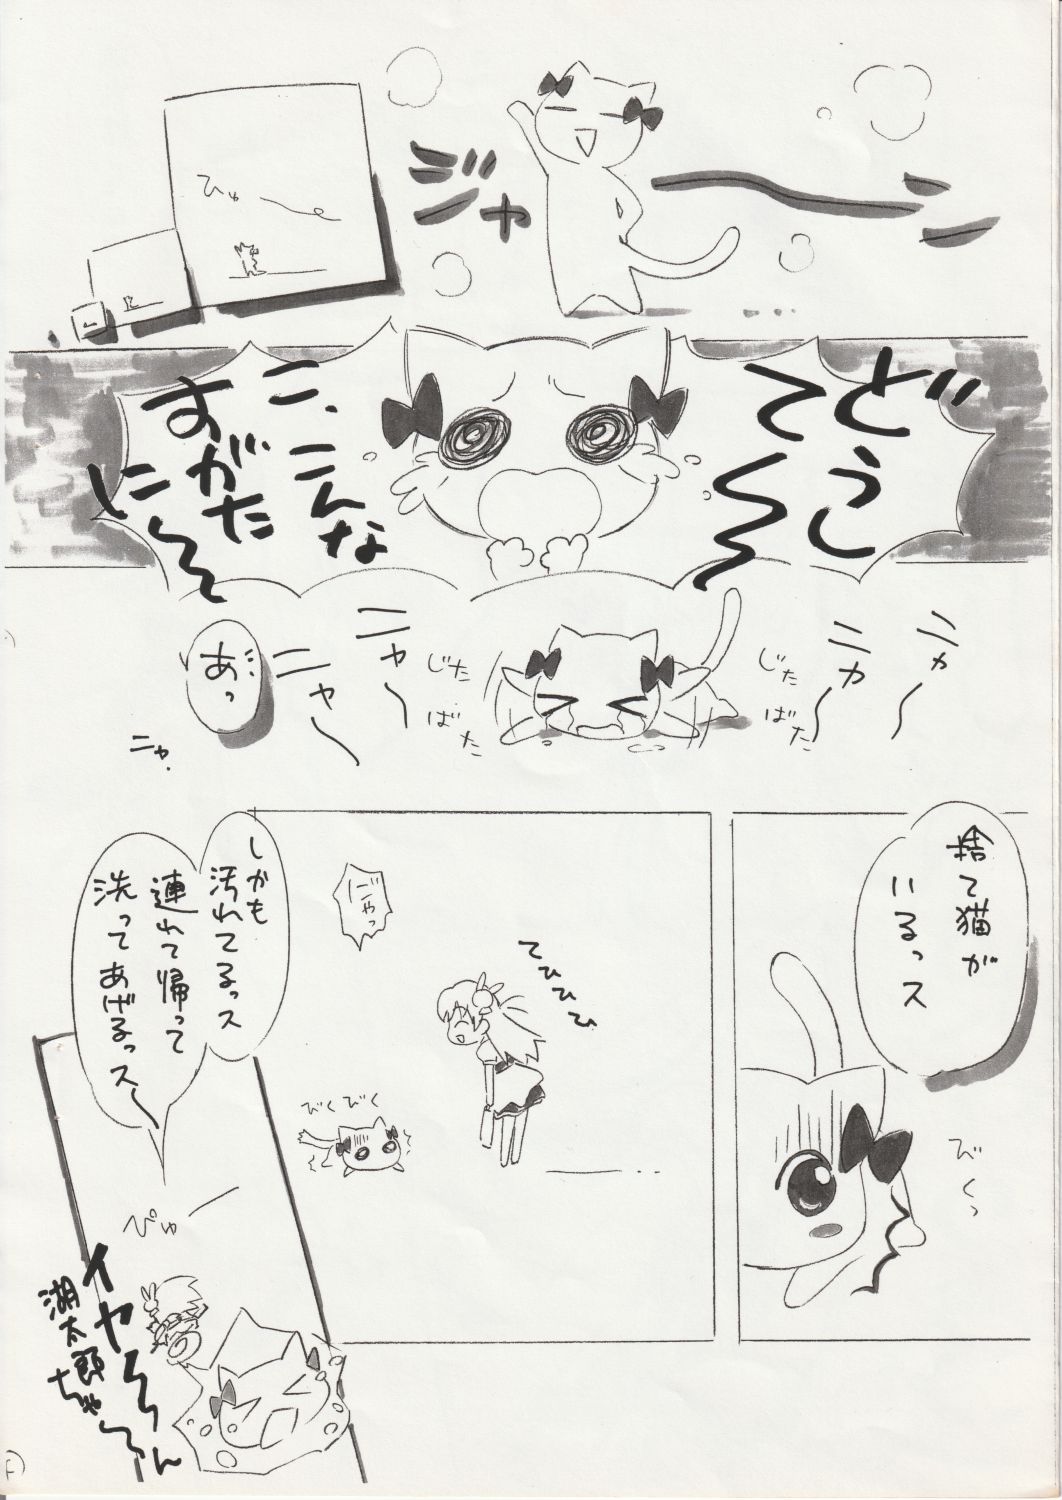 ジャーン
ひゅー
どうし
てーー
こ、こんな
すがた
にーー
ニャー
ニャー
じたばた
じたばた
ニャー
ニャー
あっ
ニャ.
捨て猫が
いるっス
びくっ
にゃっ
てひひひ
びくびく
しかも
汚れてるっス
連れて帰って
洗ってあげるっスー
ぴゅー
イヤーーん
湖太郎ちゃーん